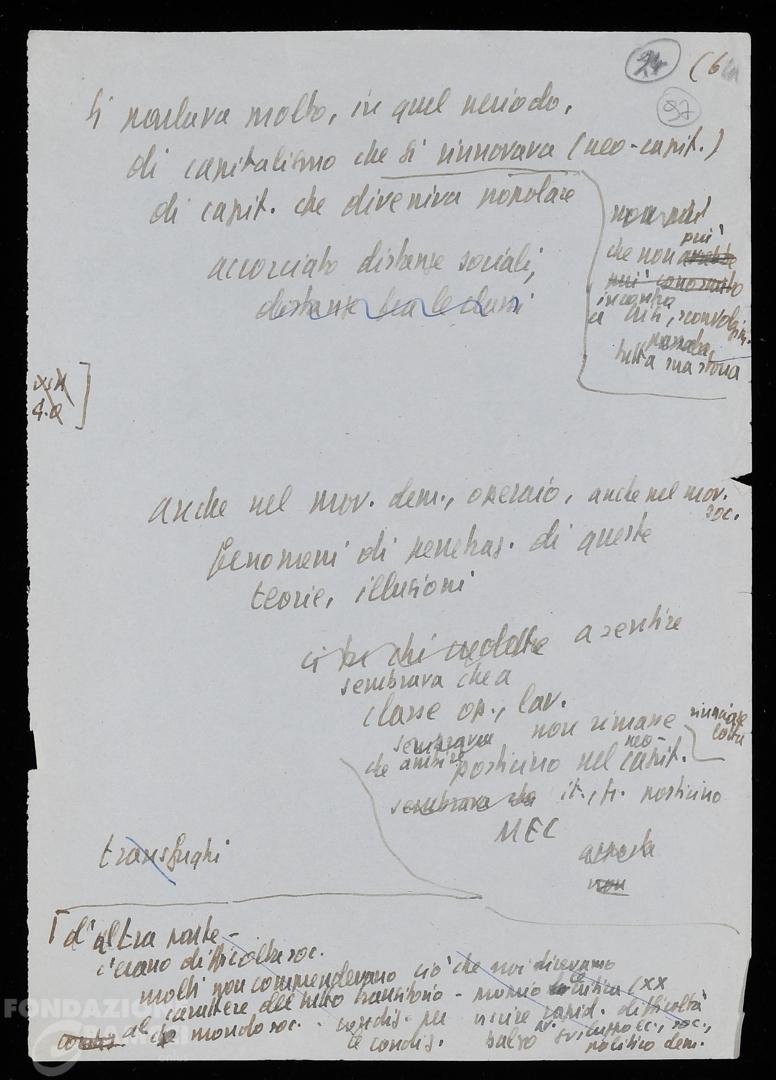 24 (6
97
Si parlava molto, in quel periodo,
di capitalismo che si rinnovava (neo-capit.)
di capit. che diveniva popolare
accorciato distanze sociali,
distanze fra le classi
non più
che non
più
più conosciuto
incontra
crisi,
tutta sua storia
4.0
anche nel mov. dem., operaio, anche nel mov.
soc.
fenomeni di penetraz. di queste
teorie, illusioni
ci fu chi credette a sentire
sembrava che a
classe op., lav.
sembrava non rimane
che posticino nel neo-capit.
sembrava che it., posticino
MEC
non
transfughi
d'altra parte -
c'erano difficoltà soc.
molti non comprendevano ciò che noi dicevamo
al carattere del tutto transitorio - critica (XX
mondo soc. - condiz. per uscire rapid. difficoltà
le condiz. salto sviluppo ec., soc.,
politico dem.
FONDAZIONE
GRAMSCI
onlus